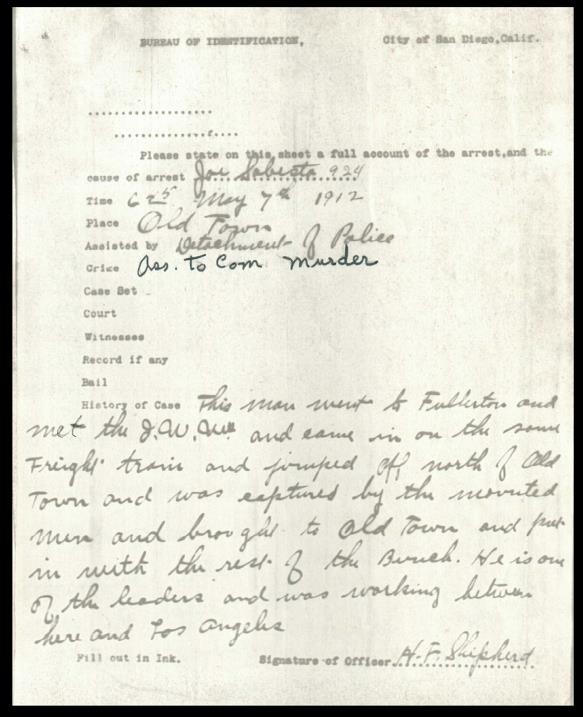 BUREAU OF IDENTIFICATION, City of San Diego,Calif.
Please state on this sheet a full account of the arrest,and the
cause of arrest Joe Sabesta 924
Time 6 25 May 7th 1912
Place Old Town
Assisted by Detachment of Police
Crime Ass. to Com. murder
Case Set
Court
Witnesses
Record if any
Bail
History of Case This man went to Fullerton and
met the I.W.W. and came in on the same
Freight train and jumped off north of Old
Town and was captured by the mounted
men and brought to Old Town and put
in with the rest of the Bunch. He is one
of the leaders and was working between
here and Los Angeles
Fill out in Ink. Signature of Officer H. F. Shepherd